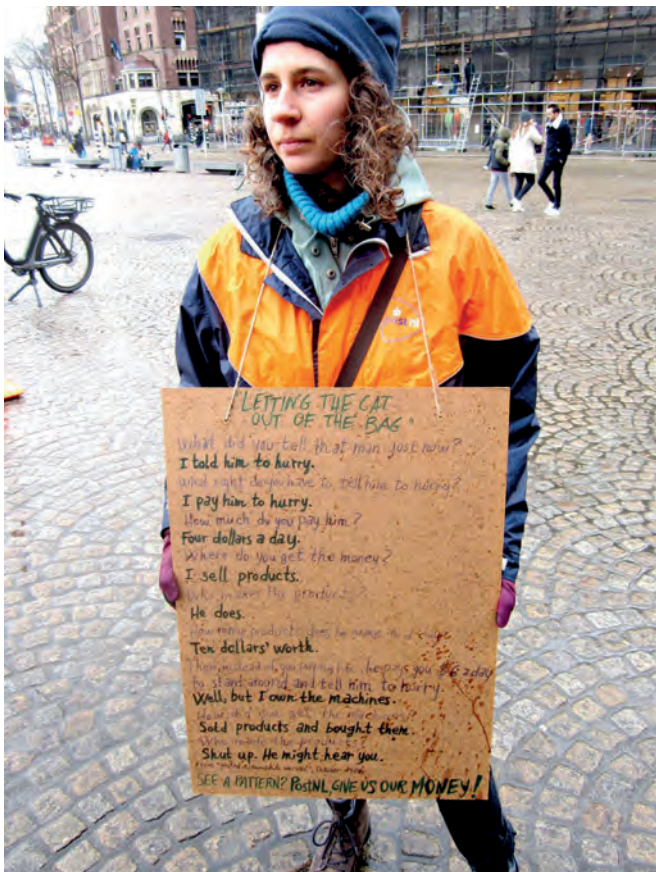 "LETTING THE CAT
OUT OF THE BAG"
What did you tell that man just now?
I told him to hurry.
What right do you have to tell him to hurry?
I pay him to hurry.
How much do you pay him?
Four dollars a day.
Where do you get the money?
I sell products.
Who makes the products?
He does.
How many products does he make in a day?
Ten dollars' worth.
Then, instead of you paying him, he pays you $6 a day
to stand around and tell him to hurry.
Well, but I own the machines.
How did you get the machines?
Sold products and bought them.
Who made the products?
Shut up. He might hear you.
SEE A PATTERN? PostNL, GIVE US OUR MONEY!